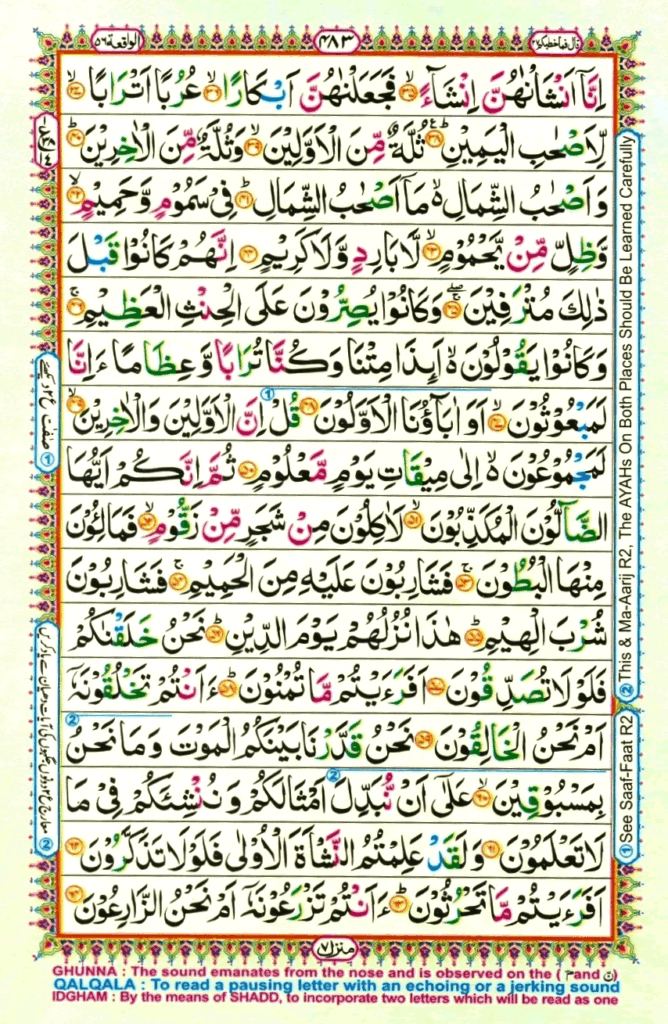 الواقعة ٥٦
٤٨٣
قال فما خطبكم ٢٧
اِنَّاۤ اَنْشَاْنٰهُنَّ اِنْشَآءً ۙ﴿۳۵﴾ فَجَعَلْنٰهُنَّ اَبْكَارًا ۙ﴿۳۶﴾ عُرُبًا اَتْرَابًا ۙ﴿۳۷﴾
لِّاَصْحٰبِ الْيَمِيْنِ ؕ﴿۳۸﴾ ثُلَّةٌ مِّنَ الْاَوَّلِيْنَ ۙ﴿۳۹﴾ وَثُلَّةٌ مِّنَ الْاٰخِرِيْنَ ؕ﴿۴۰﴾
وَاَصْحٰبُ الشِّمَالِ ۙ۬ مَاۤ اَصْحٰبُ الشِّمَالِ ؕ﴿۴۱﴾ فِيْ سَمُوْمٍ وَّحَمِيْمٍ ۙ﴿۴۲﴾
وَّظِلٍّ مِّنْ يَّحْمُوْمٍ ۙ﴿۴۳﴾ لَّا بَارِدٍ وَّلَا كَرِيْمٍ ﴿۴۴﴾ اِنَّهُمْ كَانُوْا قَبْلَ
ذٰلِكَ مُتْرَفِيْنَ ۚۖ﴿۴۵﴾ وَكَانُوْا يُصِرُّوْنَ عَلَى الْحِنْثِ الْعَظِيْمِ ۚ﴿۴۶﴾
وَكَانُوْا يَقُوْلُوْنَ ۙ۬ اَىِٕذَا مِتْنَا وَكُنَّا تُرَابًا وَّعِظَامًا ءَاِنَّا
لَمَبْعُوْثُوْنَ ۙ﴿۴۷﴾ اَوَ اٰبَآؤُنَا الْاَوَّلُوْنَ ﴿۴۸﴾ قُلْ اِنَّ الْاَوَّلِيْنَ وَالْاٰخِرِيْنَ ۙ﴿۴۹﴾
لَمَجْمُوْعُوْنَ ۙ۬ اِلٰى مِيْقَاتِ يَوْمٍ مَّعْلُوْمٍ ﴿۵۰﴾ ثُمَّ اِنَّكُمْ اَيُّهَا
الضَّآلُّوْنَ الْمُكَذِّبُوْنَ ۙ﴿۵۱﴾ لَاٰكِلُوْنَ مِنْ شَجَرٍ مِّنْ زَقُّوْمٍ ۙ﴿۵۲﴾ فَمَالِـُٔوْنَ
مِنْهَا الْبُطُوْنَ ۚ﴿۵۳﴾ فَشَارِبُوْنَ عَلَيْهِ مِنَ الْحَمِيْمِ ۚ﴿۵۴﴾ فَشَارِبُوْنَ
شُرْبَ الْهِيْمِ ؕ﴿۵۵﴾ هٰذَا نُزُلُهُمْ يَوْمَ الدِّيْنِ ؕ﴿۵۶﴾ نَحْنُ خَلَقْنٰكُمْ
فَلَوْلَا تُصَدِّقُوْنَ ﴿۵۷﴾ اَفَرَءَيْتُمْ مَّا تُمْنُوْنَ ؕ﴿۵۸﴾ ءَاَنْتُمْ تَخْلُقُوْنَهٗۤ
اَمْ نَحْنُ الْخَالِقُوْنَ ﴿۵۹﴾ نَحْنُ قَدَّرْنَا بَيْنَكُمُ الْمَوْتَ وَمَا نَحْنُ
بِمَسْبُوْقِيْنَ ۙ﴿۶۰﴾ عَلٰۤى اَنْ نُّبَدِّلَ اَمْثَالَكُمْ وَنُنْشِئَكُمْ فِيْ مَا
لَا تَعْلَمُوْنَ ﴿۶۱﴾ وَلَقَدْ عَلِمْتُمُ النَّشْاَةَ الْاُوْلٰى فَلَوْلَا تَذَكَّرُوْنَ ﴿۶۲﴾
اَفَرَءَيْتُمْ مَّا تَحْرُثُوْنَ ؕ﴿۶۳﴾ ءَاَنْتُمْ تَزْرَعُوْنَهٗۤ اَمْ نَحْنُ الزَّارِعُوْنَ ﴿۶۴﴾
① See Saaf-Faat R2 ② This & Ma-Aarij R2, The AYAHs On Both Places Should Be Learned Carefully
منزل ٧
GHUNNA : The sound emanates from the nose and is observed on the ( م and ن)
QALQALA : To read a pausing letter with an echoing or a jerking sound
IDGHAM : By the means of SHADD, to incorporate two letters which will be read as one